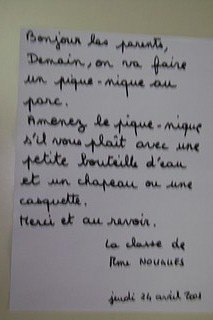 Bonjour les parents,
Demain, on va faire
un pique-nique au
parc.
Amenez le pique-nique
s'il vous plaît avec une
petite bouteille d'eau
et un chapeau ou une
casquette.
Merci et au revoir.
La classe de
Mme NOUGUES
jeudi 24 avril